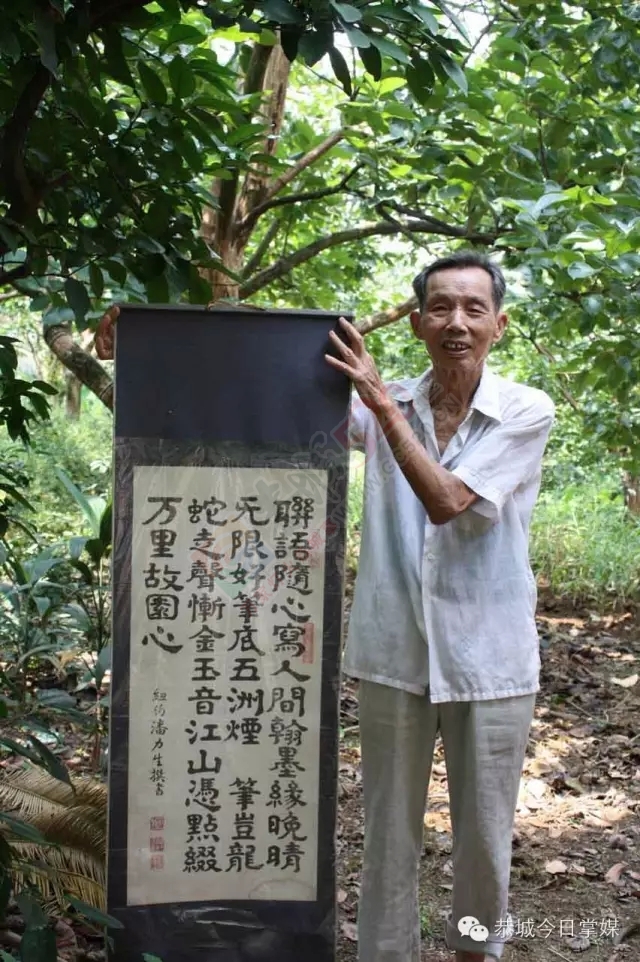 聯語隨心寫人間翰墨緣晚晴
无限好筆底五洲煙 筆豈龍
蛇走聲慚金玉音江山憑點綴
万里故園心
紐約潘力生撰書
恭城今日掌媒